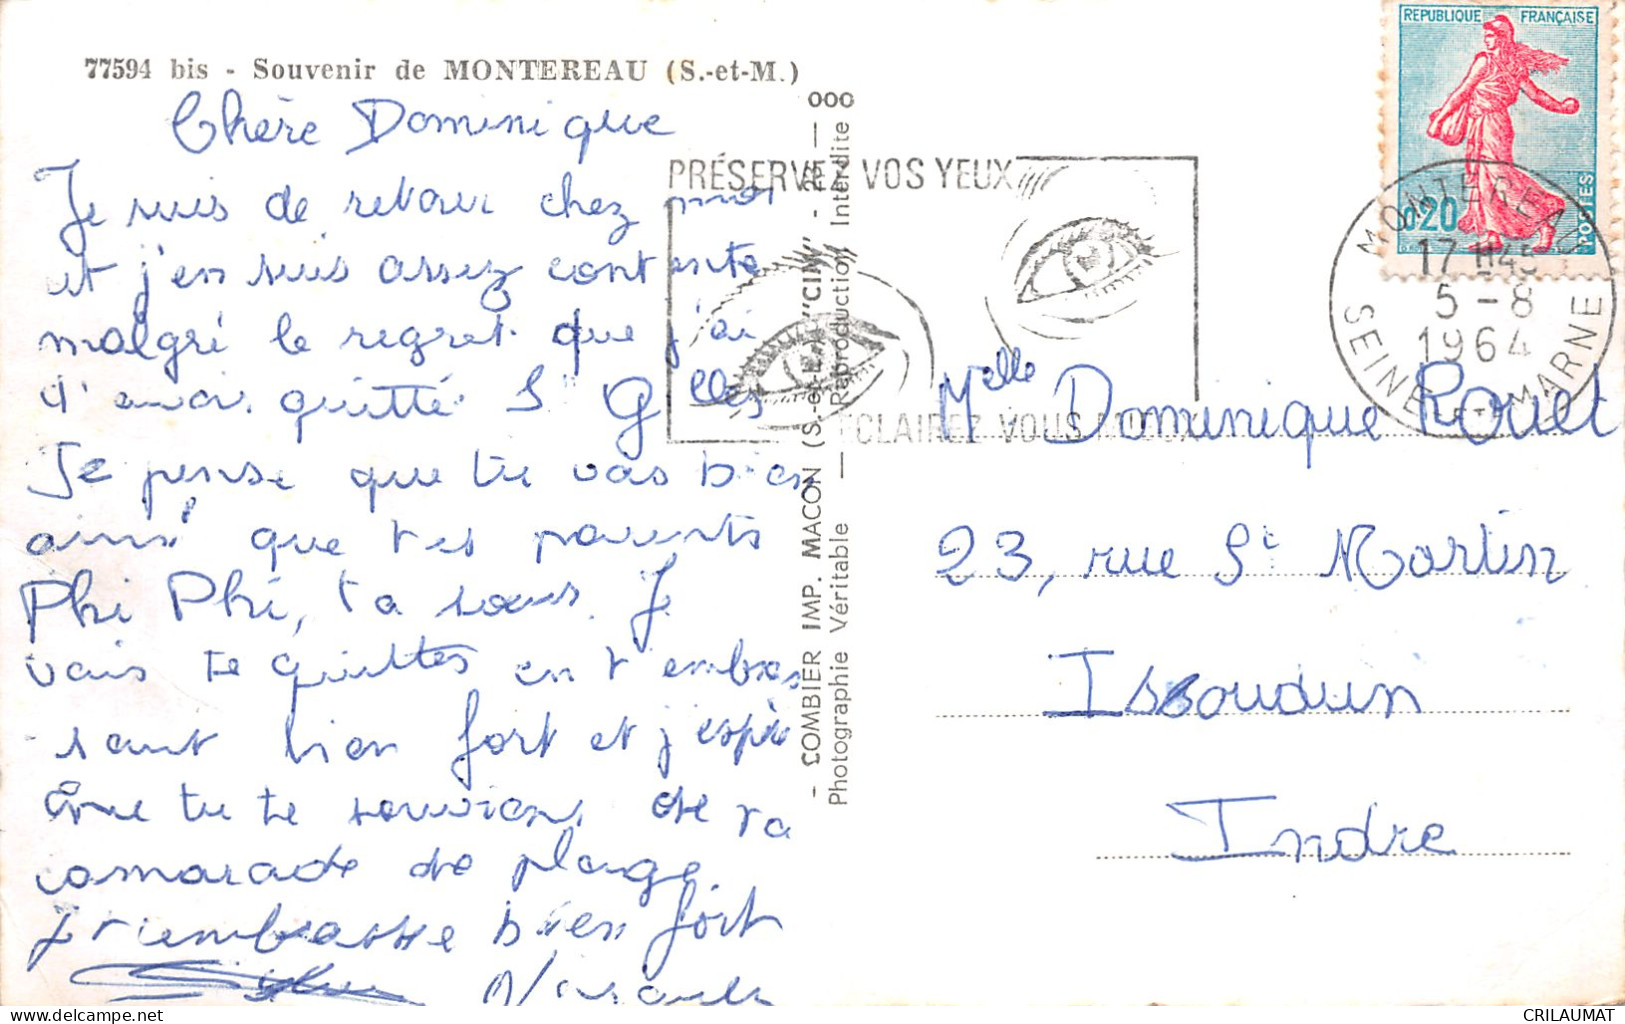 77594 bis - Souvenir de MONTEREAU (S.-et-M.)
Chère Dominique
Je suis de retour chez moi
et j'en suis assez contente
malgré le regret que j'ai
d'avoir quitté St Gilles
Je pense que tu vas bien
ainsi que tes parents
Phi Phi, ta sœur. Je
vais te quittes en t'embras
sant bien fort et j'espère
que tu te souviens de ta
camarade de plage
Je t'embrasse bien fort
- COMBIER IMP. MACON (S.-et-L.) "CIM" -
Photographie Véritable — Reproduction Interdite
000
PRÉSERVEZ VOS YEUX
ECLAIREZ VOUS MIEUX
REPUBLIQUE FRANÇAISE
0,20
POSTES
MONTEREAU
17H45
5-8
1964
SEINE-ET-MARNE
Melle Dominique Rouet
23, rue St Martin
Issoudun
Indre
CRILAUMAT